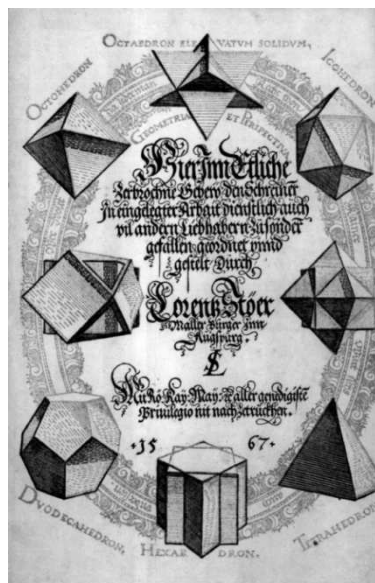 OCTAEDRON ELE VATVM SOLIDVM,
OCTOHEDRON
ICOHEDRON
GEOMETRIA ET PERSPECTIVA
Hier Jnn Etliche
Zerbrochne Gebew, den Schreiner
Jn eingelegter Arbait dienstlich, auch
vil andern Liebhabern Zusonder
gefallen geordnet vnnd
gestelt Durch
Lorentz Stöer
Maller Burger Jnn
Augspurg.
Mit Rö: Kay: May: aller genedigiste
Privilegio nit nachzetruckhen.
·15 67·
DVODECAHEDRON,
HEXAE DRON.
TETRAHEDRON